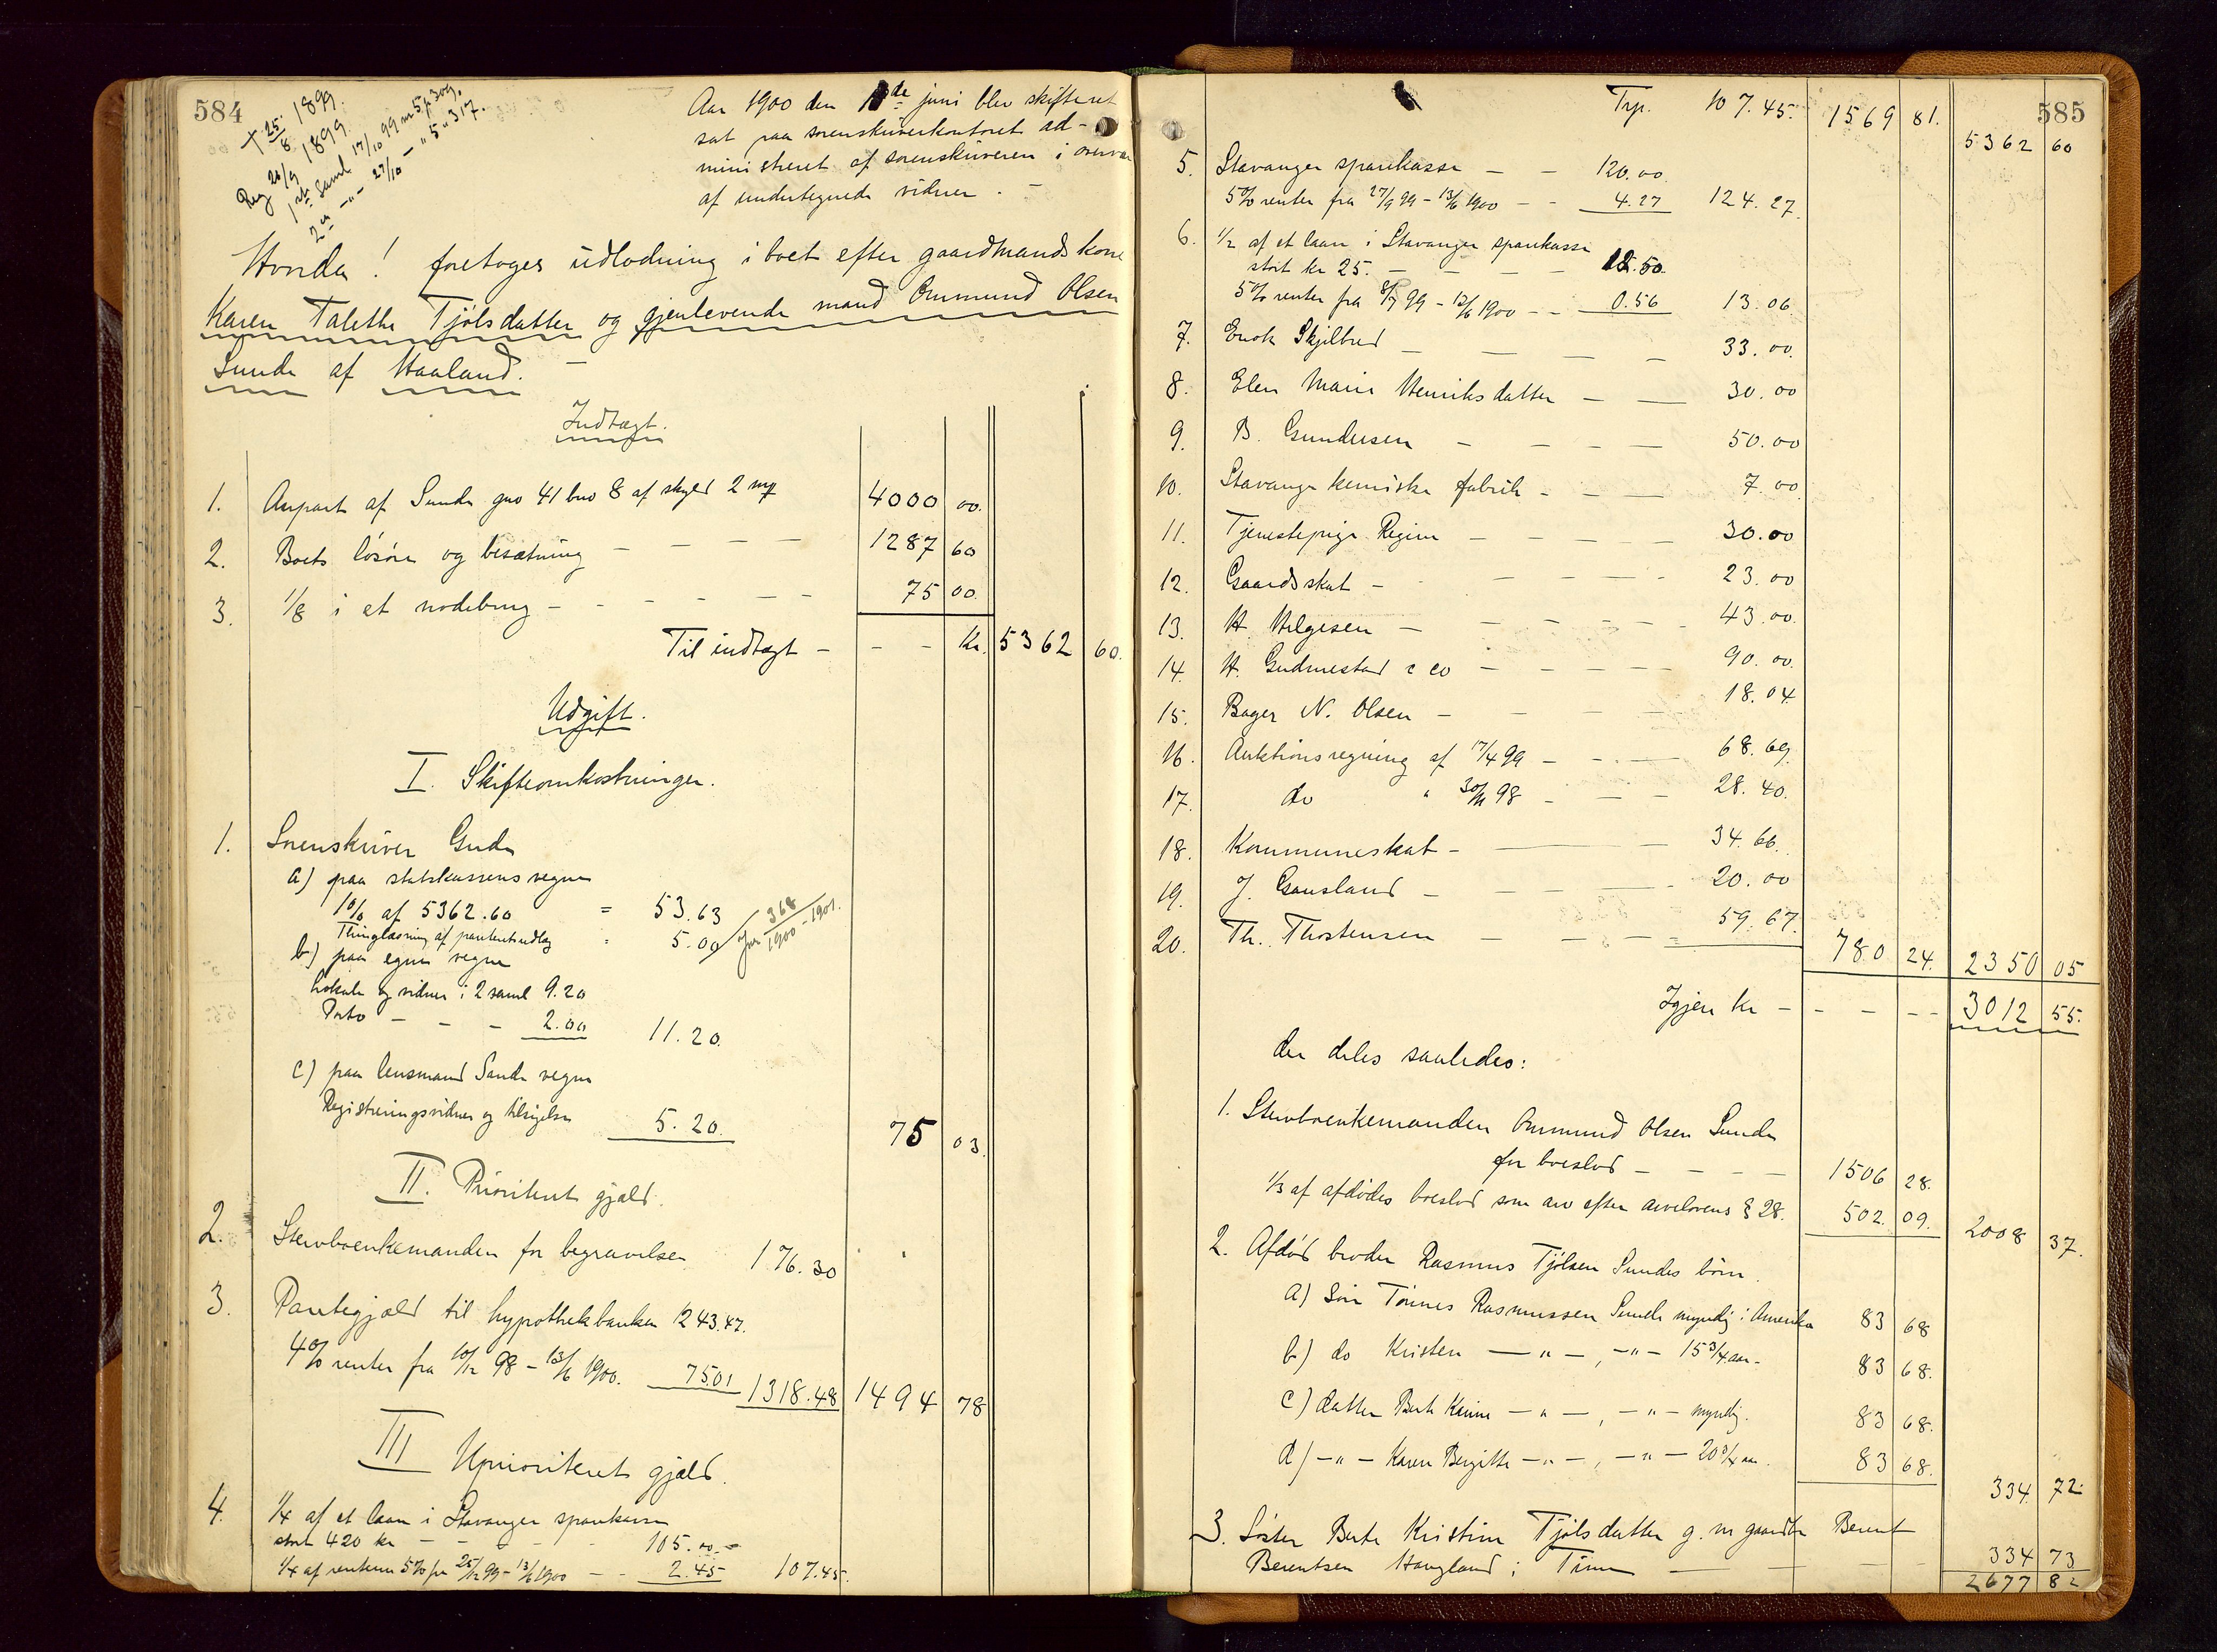 584
† 25/8 1899.
Reg 26/9 1899.
1ste saml 17/10 99 m 5 p 309.
2den —"— 27/10 — " 5 " 317.
Aar 1900 den 13de juni blev skifteret
sat paa sorenskriverkontoret ad-
ministreret af sorenskriveren i overvær
af undertegnede vidner. —
Hvorda! foretoges udlodning i boet efter gaardmandskone
Karen Talette Tjölsdatter og gjenlevende mand Ommund Olsen
Sunde af Haaland. —
Indtægt.
1. Anpart af Sunde gno 41 bno 8 af skyld 2 my 4000 00.
2. Boets lösöre og besætning — — — — 1287 60
3. 1/8 i et nodebrug — — — — — — 75 00.
Til indtægt — — — Kr. 5362 60.
Udgift.
I. Skifteomkostninger.
1. Sorenskriver Gude
a) paa statskassens vegne
1% af 5362.60 = 53.63
Thinglæsning af panteretsudlæg = 5.00 Jnr 368/1900-1901.
b) paa egne vegne
Lokale og vidner i 2 saml 9.20
Porto — — — 2.00 11.20.
c) paa lensmand Sande vegne
Registreringsvidner og tilsigelse 5.20. 75 03.
II. Prioriteret gjæld.
2. Stervboenkemanden for begravelsen 176.30
3. Pantegjæld til hypothekbanken 1243.47.
4% renter fra 10/12 98 – 13/6 1900. 75.01 1318.48 1494 78
III Uprioriteret gjæld.
4. 1/4 af et laan i Stavanger sparekasse
stort 420 kr — — — — 105.00.—
1/4 af renterne 5% fra 25/12 99 – 13/6 1900 — — 2.45 107.45.
585
Trp. 107.45. 1569 81.
5362 60
5. Stavanger sparekasse — — 120.00.
5% renter fra 27/9 99 – 13/6 1900 — — 4.27 124.27.
6. 1/2 af et laan i Stavanger sparekasse
stort kr 25. — — — — 12.50.
5% renter fra 99 – 13/6 1900 — — 0.56 13.06.
7. Enok Skjilbred — — — — 33.00.
8. Elen Marie Henriksdatter — — 30.00
9. B. Gundersen — — — — 50.00
10. Stavanger kemiske fabrik — — — 7.00.
11. Tjenestepige Regine — — — — 30.00
12. Gaardsskat — — — — — 23.00
13. H. Helgesen — — — — — — 43.00.
14. H. Gudmestad & co — — — — — 90.00.
15. Bager N. Olsen — — — — 18.04.
16. Auktionsregning af 17/4 99 — — — 68.69.
17. do " 30/11 98 — — — 28.40.
18. Kommuneskat — — — 34.66.
19. J. Gausland — — — — — 20.00
20. Th. Thorstensen — — — — 59.67. 780 24. 2350 05
Igjen kr — — — — — 3012 55.
der deles saaledes:
1. Stervboenkemanden Ommund Olsen Sunde
for boeslod — — — — 1506 28.
1/3 af afdödes boeslod som arv efter arvelovens § 28. 502. 09. 2008 37.
2. Afdöd broder Rasmus Tjölsen Sundes börn.
a) Sön Tönnes Rasmussen Sunde myndig i Amerika 83 68
b) do Kristen —"—, —"— 15 3/4 aar. 83 68.
c) datter Berte Karine —"—, —"— myndig. 83 68.
d) —"— Karen Bergitte —"—, —"— 20 3/4 aar. 83 68. 334 72.
3. Söster Berte Kristine Tjölsdatter g. m gaardbr Berent
Berentsen Haugland i Time — — — — 334 73
2677 82